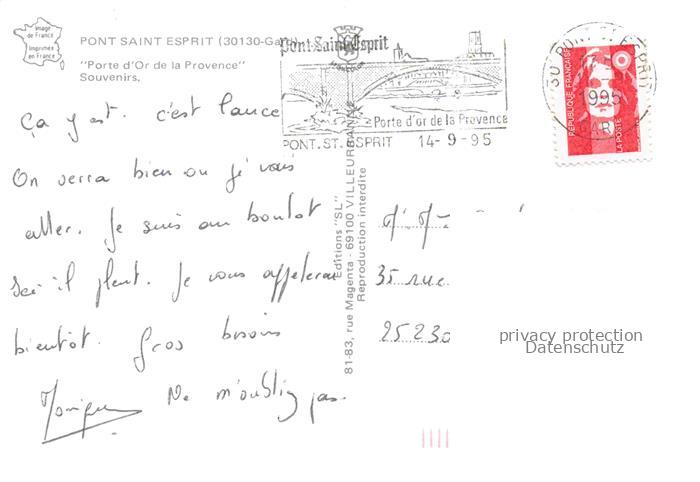 Image
de France
Imprimée
en France
PONT SAINT ESPRIT (30130-Gard)
"Porte d'Or de la Provence"
Souvenirs.
Pont-Saint-Esprit
Porte d'or de la Provence
PONT.ST.ESPRIT 14-9-95
30 PONT ST ESPRIT
1995
GARD
REPUBLIQUE FRANÇAISE
LA POSTE
Ça y est. c'est lancé
On verra bien où je vais
aller. Je suis au boulot
Ici il pleut. Je vous appelerai
bientôt. Gros bisous
Monique Ne m'oubliez pas.
Editions "SL"
81-83, rue Magenta - 69100 VILLEURBANNE
Reproduction interdite
35 rue
25230
privacy protection
Datenschutz